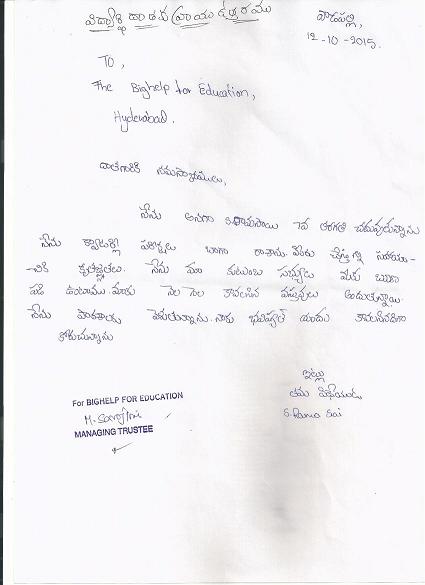 విద్యార్థి దాతకు వ్రాయు ఉత్తరము
పొడపల్లి,
12-10-2015.
To,
The Bighelp for Education,
Hyderabad.
దాతగారికి నమస్కారములు,
నేను అనగా 7వ తరగతి చదువుచున్నాను
నేను క్వార్టర్లీ పరీక్షలు బాగా రాశాను. మీరు చేస్తున్న సహాయా-
-నికి కృతజ్ఞతలు. నేను మా కుటుంబ సభ్యులు మీకు ఋణ
పడి ఉంటాము. మాకు నెల నెల కావలసిన వస్తువులు అందుతున్నాయి.
నేను పాఠశాలకు వెళుతున్నాను. నాకు భవిష్యత్ యందు
కోరుచున్నాను
ఇట్లు
తమ విధేయుడు
S. Rama Sai
For BIGHELP FOR EDUCATION
M. Sarojini
MANAGING TRUSTEE